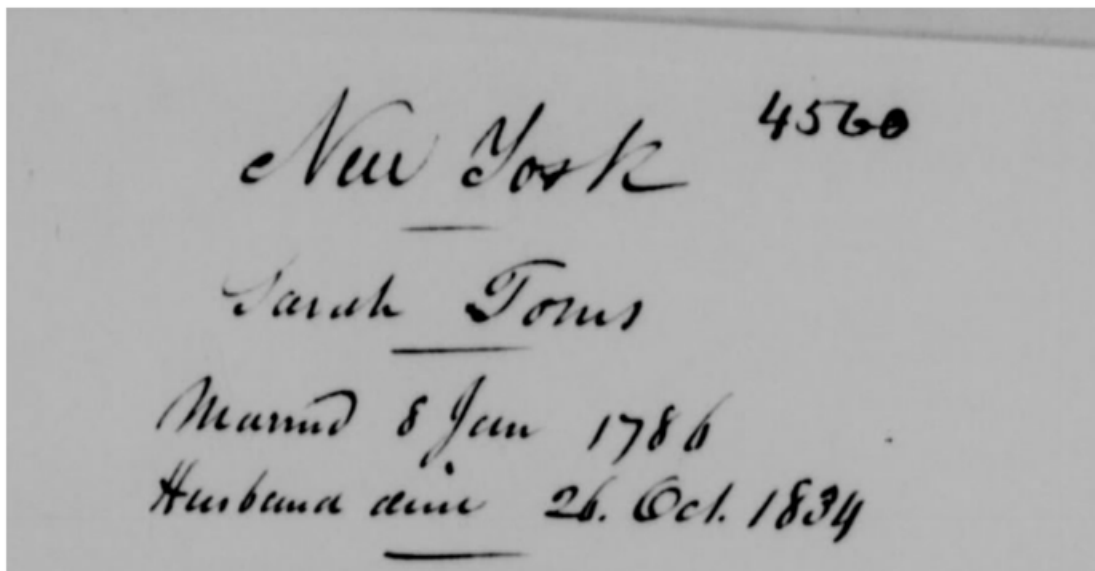 New York 4560
Sarah Toms
Married 8 Jan 1786
Husband died 26. Oct. 1834